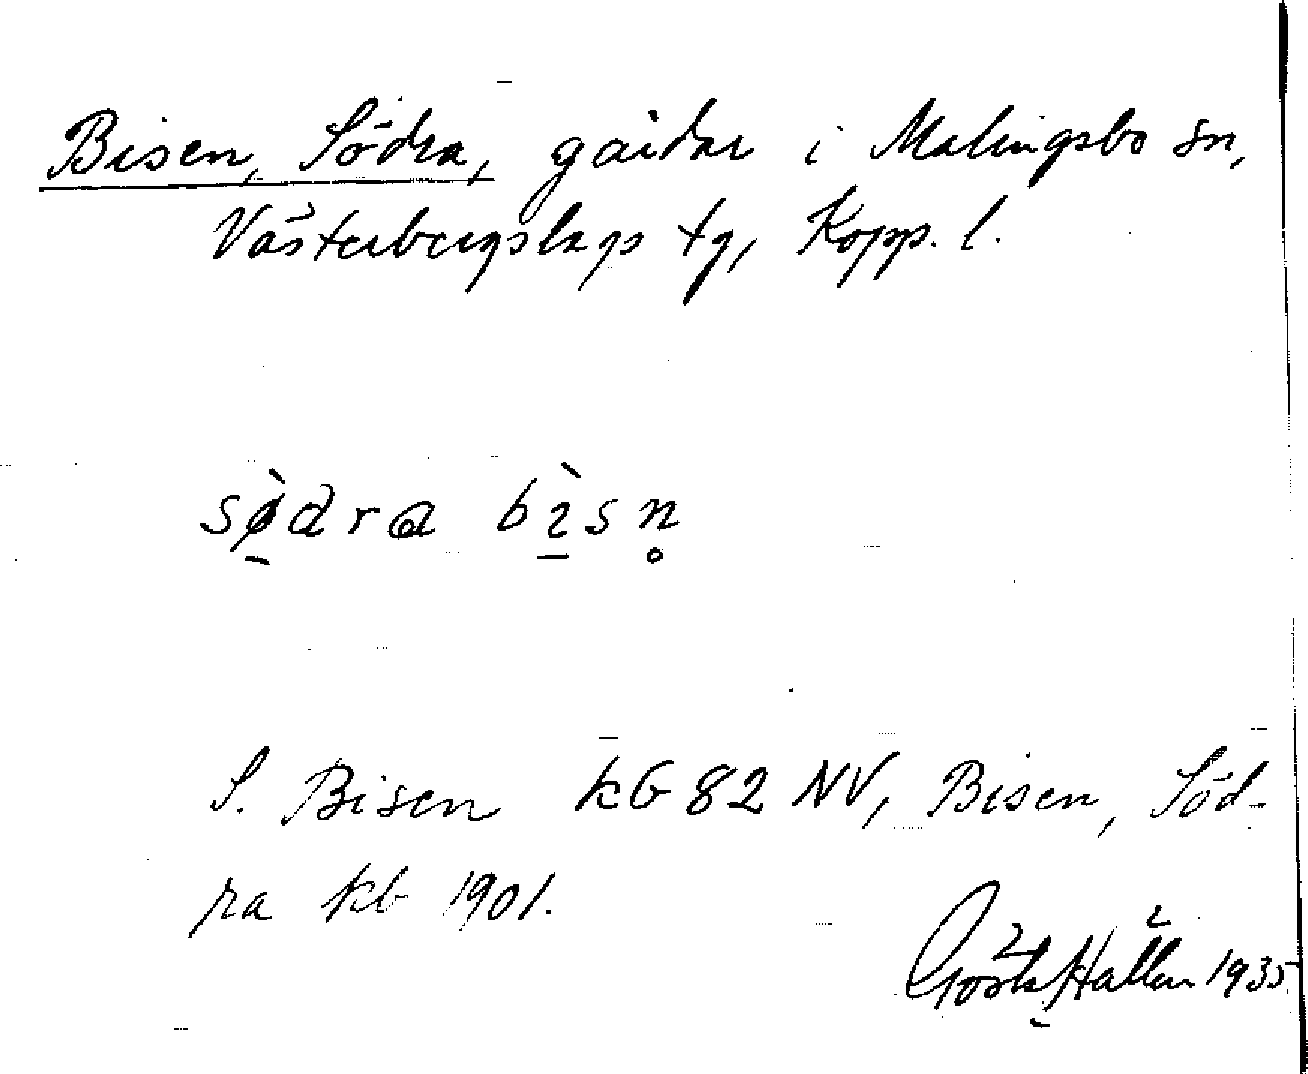 Bisen, Södra, gårdar i Malingsbo sn,
Västerbergslags tg, Kopp. l.
sø̀dra bìsn̥
S. Bisen kG 82 NV, Bisen, Söd-
ra kb 1901.
Gösta Hallén 1935